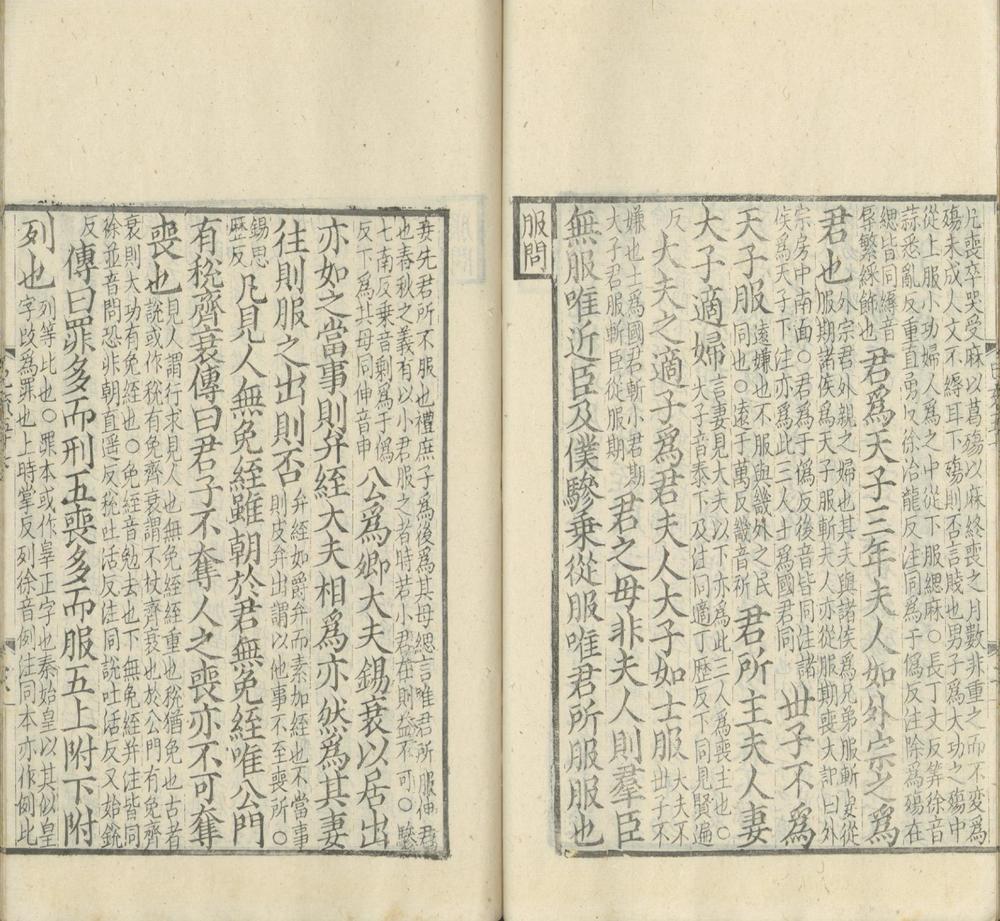 凡喪卒哭受麻以葛殤以麻終喪之月數非重之而不變爲
殤未成人文不縟耳下殤則否言賤也男子爲大功之殤中
從上服小功婦人爲之中從下服緦麻○長丁丈反筭徐音
蒜悉亂反重直勇又徐治龍反注同爲于僞反注除爲殤在
緦皆同縟音辱繁綵飾也 君爲天子三年夫人如外宗之爲
君也 外宗君外親之婦也其夫與諸侯爲兄弟服斬妻從服期諸侯爲天子服斬夫人亦從服期喪大記曰外
宗房中南面○君爲于僞反後音皆同注諸侯爲天子下注亦爲此三人士爲國君同 世子不爲
天子服 遠嫌也不服與畿外之民同也○遠于萬反畿音祈 君所主夫人妻
大子適婦 言妻見大夫以下亦爲此三人爲喪主也○大子音泰下及注同適丁歷反下同見賢遍
反 大夫之適子爲君夫人大子如士服 大夫不世子不
嫌也士爲國君斬小君期大子君服斬臣從服期 君之母非夫人則羣臣
無服唯近臣及僕驂乗從服唯君所服服也
服問
妾先君所不服也禮庶子爲後爲其母緦言唯君所服伸君
也春秋之義有以小君服之者時若小君在則益不可○驂
七南反乗音剩爲于僞反下爲其母同伸音申 公爲卿大夫錫衰以居出
亦如之當事則弁絰大夫相爲亦然爲其妻
往則服之出則否 弁絰如爵弁而素加絰也不當事則皮弁出謂以他事不至喪所○
錫思歷反 凡見人無免絰雖朝於君無免絰唯公門
有稅齊衰傳曰君子不奪人之喪亦不可奪
喪也 見人謂行求見人也無免絰絰重也稅猶免也古者說或作稅有免齊衰謂不杖齊衰也於公門有免齊
衰則大功有免絰也○免絰音勉去也下無免絰并注皆同
徐並音問恐非朝直遥反稅吐活反注同說吐活反又始銳
反 傳曰罪多而刑五喪多而服五上附下附
列也 列等比也○罪本或作辠正字也秦始皇以其似皇字改爲罪也上時掌反列徐音例注同本亦作例比